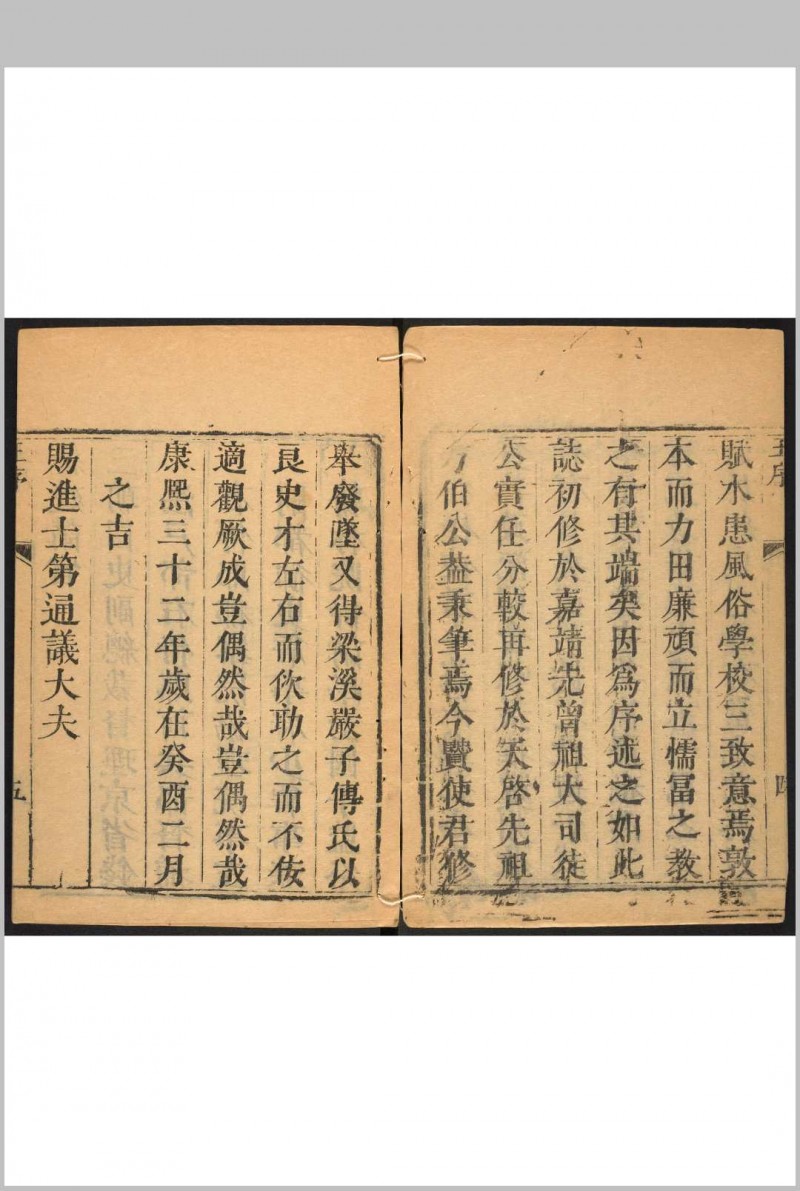 賦水患風俗學校三致意焉敦
本而力田廉頑而立懦冨之教
之有其端矣因爲序述之如此
誌初修於嘉靖先曾祖大司徒
公實任分較再修於天啓先祖
方伯公葢秉筆焉今費使君修
王序
四
舉廢墜又得梁溪嚴子傳氏以
良史才左右而佽助之而不佞
適觀厥成豈偶然哉豈偶然哉
康熈三十二年歲在癸酉二月
之吉
賜進士第通議大夫
王序
五